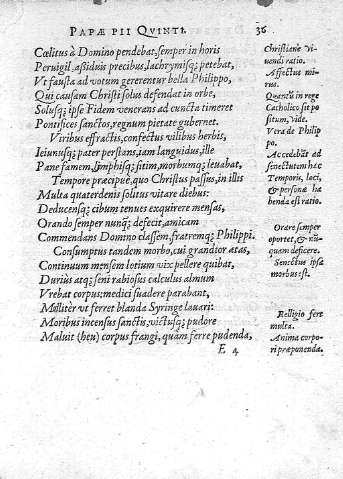 PAPAE PII QVINTI. 36
Cœlitus à Domino pendebat, semper in horis
Peruigil, aßiduis precibus, lachrymisq; petebat,
Vt fausta ad votum gererentur bella Philippo,
Qui causam Christi solus defendat in orbe,
Solusq; ipse Fidem venerans ad cuncta timeret
Pontifices sanctos, regnum pietate gubernet.
Viribus effractis, confectus vilibus herbis,
Ieiunusq; pater perstans, iam languidus, ille
Pane famem, lymphisq; sitim, morbumq; leuabat,
Tempore præcipuè, quo Christus passus, in illis
Multa quaterdenis solitus vitare diebus:
Deducensq; cibum tenues exquirere mensas,
Orando semper nunq; defecit, amicam
Commendans Domino classem, fratremq; Philippi.
Consumptus tandem morbo, cui grandior ætas,
Continuum mensem lotium vix pellere quibat,
Durius atq; seni rabiosus calculus almum
Vrebat corpus; medici suadere parabant,
Molliter vt ferret blanda Syringe lauari:
Moribus incensus sanctis, victusq; pudore
Maluit (heu) corpus frangi, quàm ferre pudenda,
E 4
Christianè vi-
uendi ratio.
Affectus mi-
rus.
Quantũ in rege
Catholico sit po
situm, vide.
Vera de Philip
po.
Accedebãt ad
senectutem hæc
Temporis, loci,
& personæ ha
benda est ratio.
Orare semper
oportet, & nũ-
quam deficere.
Senectus ipsa
morbus est.
Relligio fert
multa.
Anima corpo-
ri præponenda.